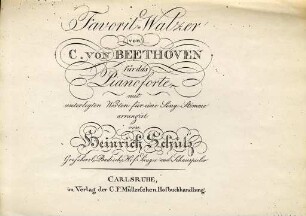 Favorit-Walzer
von
C. VON BEETHOVEN
für das
Pianoforte
mit
unterlegten Worten für eine Sing-Stimme
arrangirt
von
Heinrich Schütz
Grosherz. Badische Hof-Sänger und Schauspieler
CARLSRUHE,
in Verlag der C. F. Müllerschen Hofbuchhandlung.